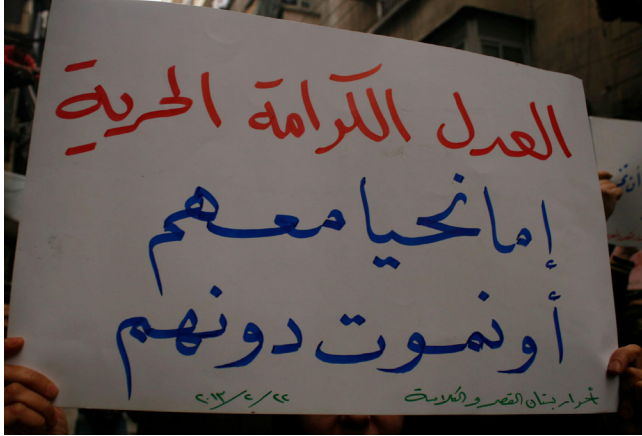 العدل الكرامة الحرية
إما نحيا معهم
أو نموت دونهم
أحرار بستان القصر و الكلاسة
٢٠١٣/٢/٢٢